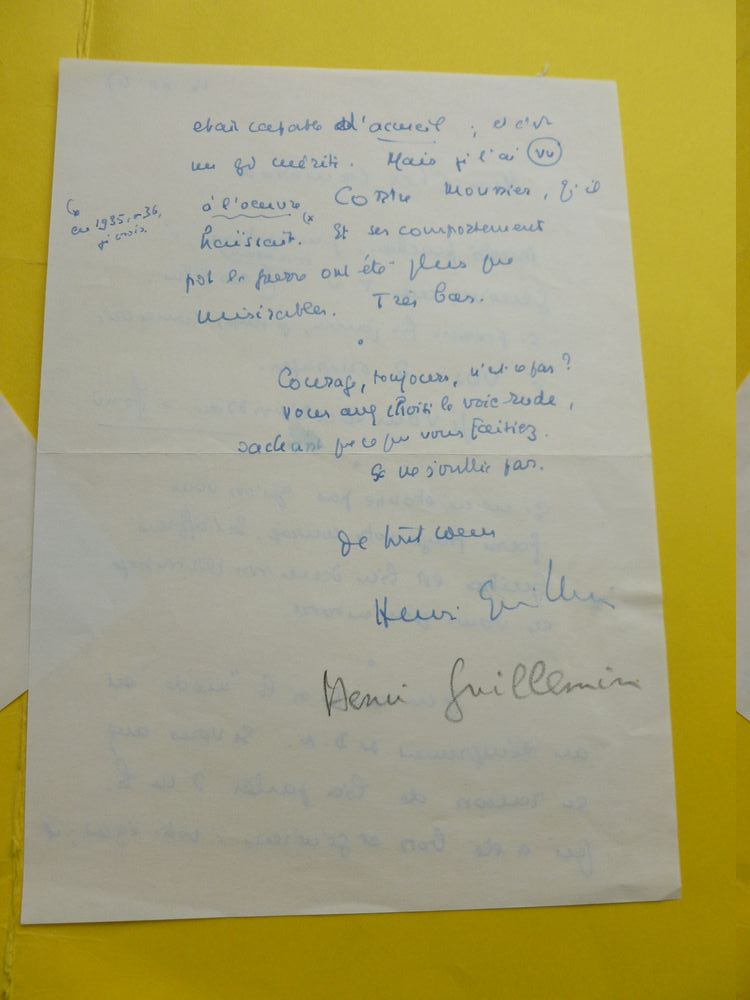 était capable d'accueil ; et c'est
un gd mérite. Mais je l'ai vu
à l'oeuvre (x contre Mounier, qu'il
(x en 1935, -36,
je crois.
haïssait. Et ses comportements
pdt la guerre ont été plus que
misérables. Très bas.
Courage, toujours, n'est-ce pas ?
Vous avez choisi la voie rude,
sachant ce que vous faisiez.
Ça ne s'oublie pas.
De tout coeur
Henri Guillemin
Henri Guillemin